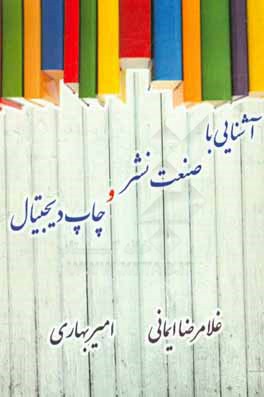 آشنایی با
صنعت نشر
و
چاپ دیجیتال
غلامرضا ایمانی
امیر بهاری